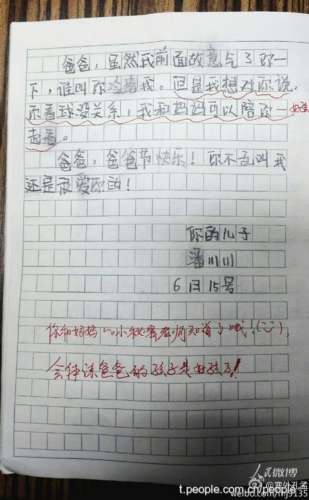 爸爸，虽然我前面故意气了你一
下，谁叫你冷落我。但是我想对你说，
你看球没关系，我和妈妈可以陪你一
起看。
爸爸，爸爸节快乐！你不乱叫我
还是很爱你的！
你的儿子
潘川川
6月15号
你和妈妈的小秘密老师知道了哦！
会体谅爸爸的孩子是好孩子！
人民微博
t.people.com.cn/people
weibo.com